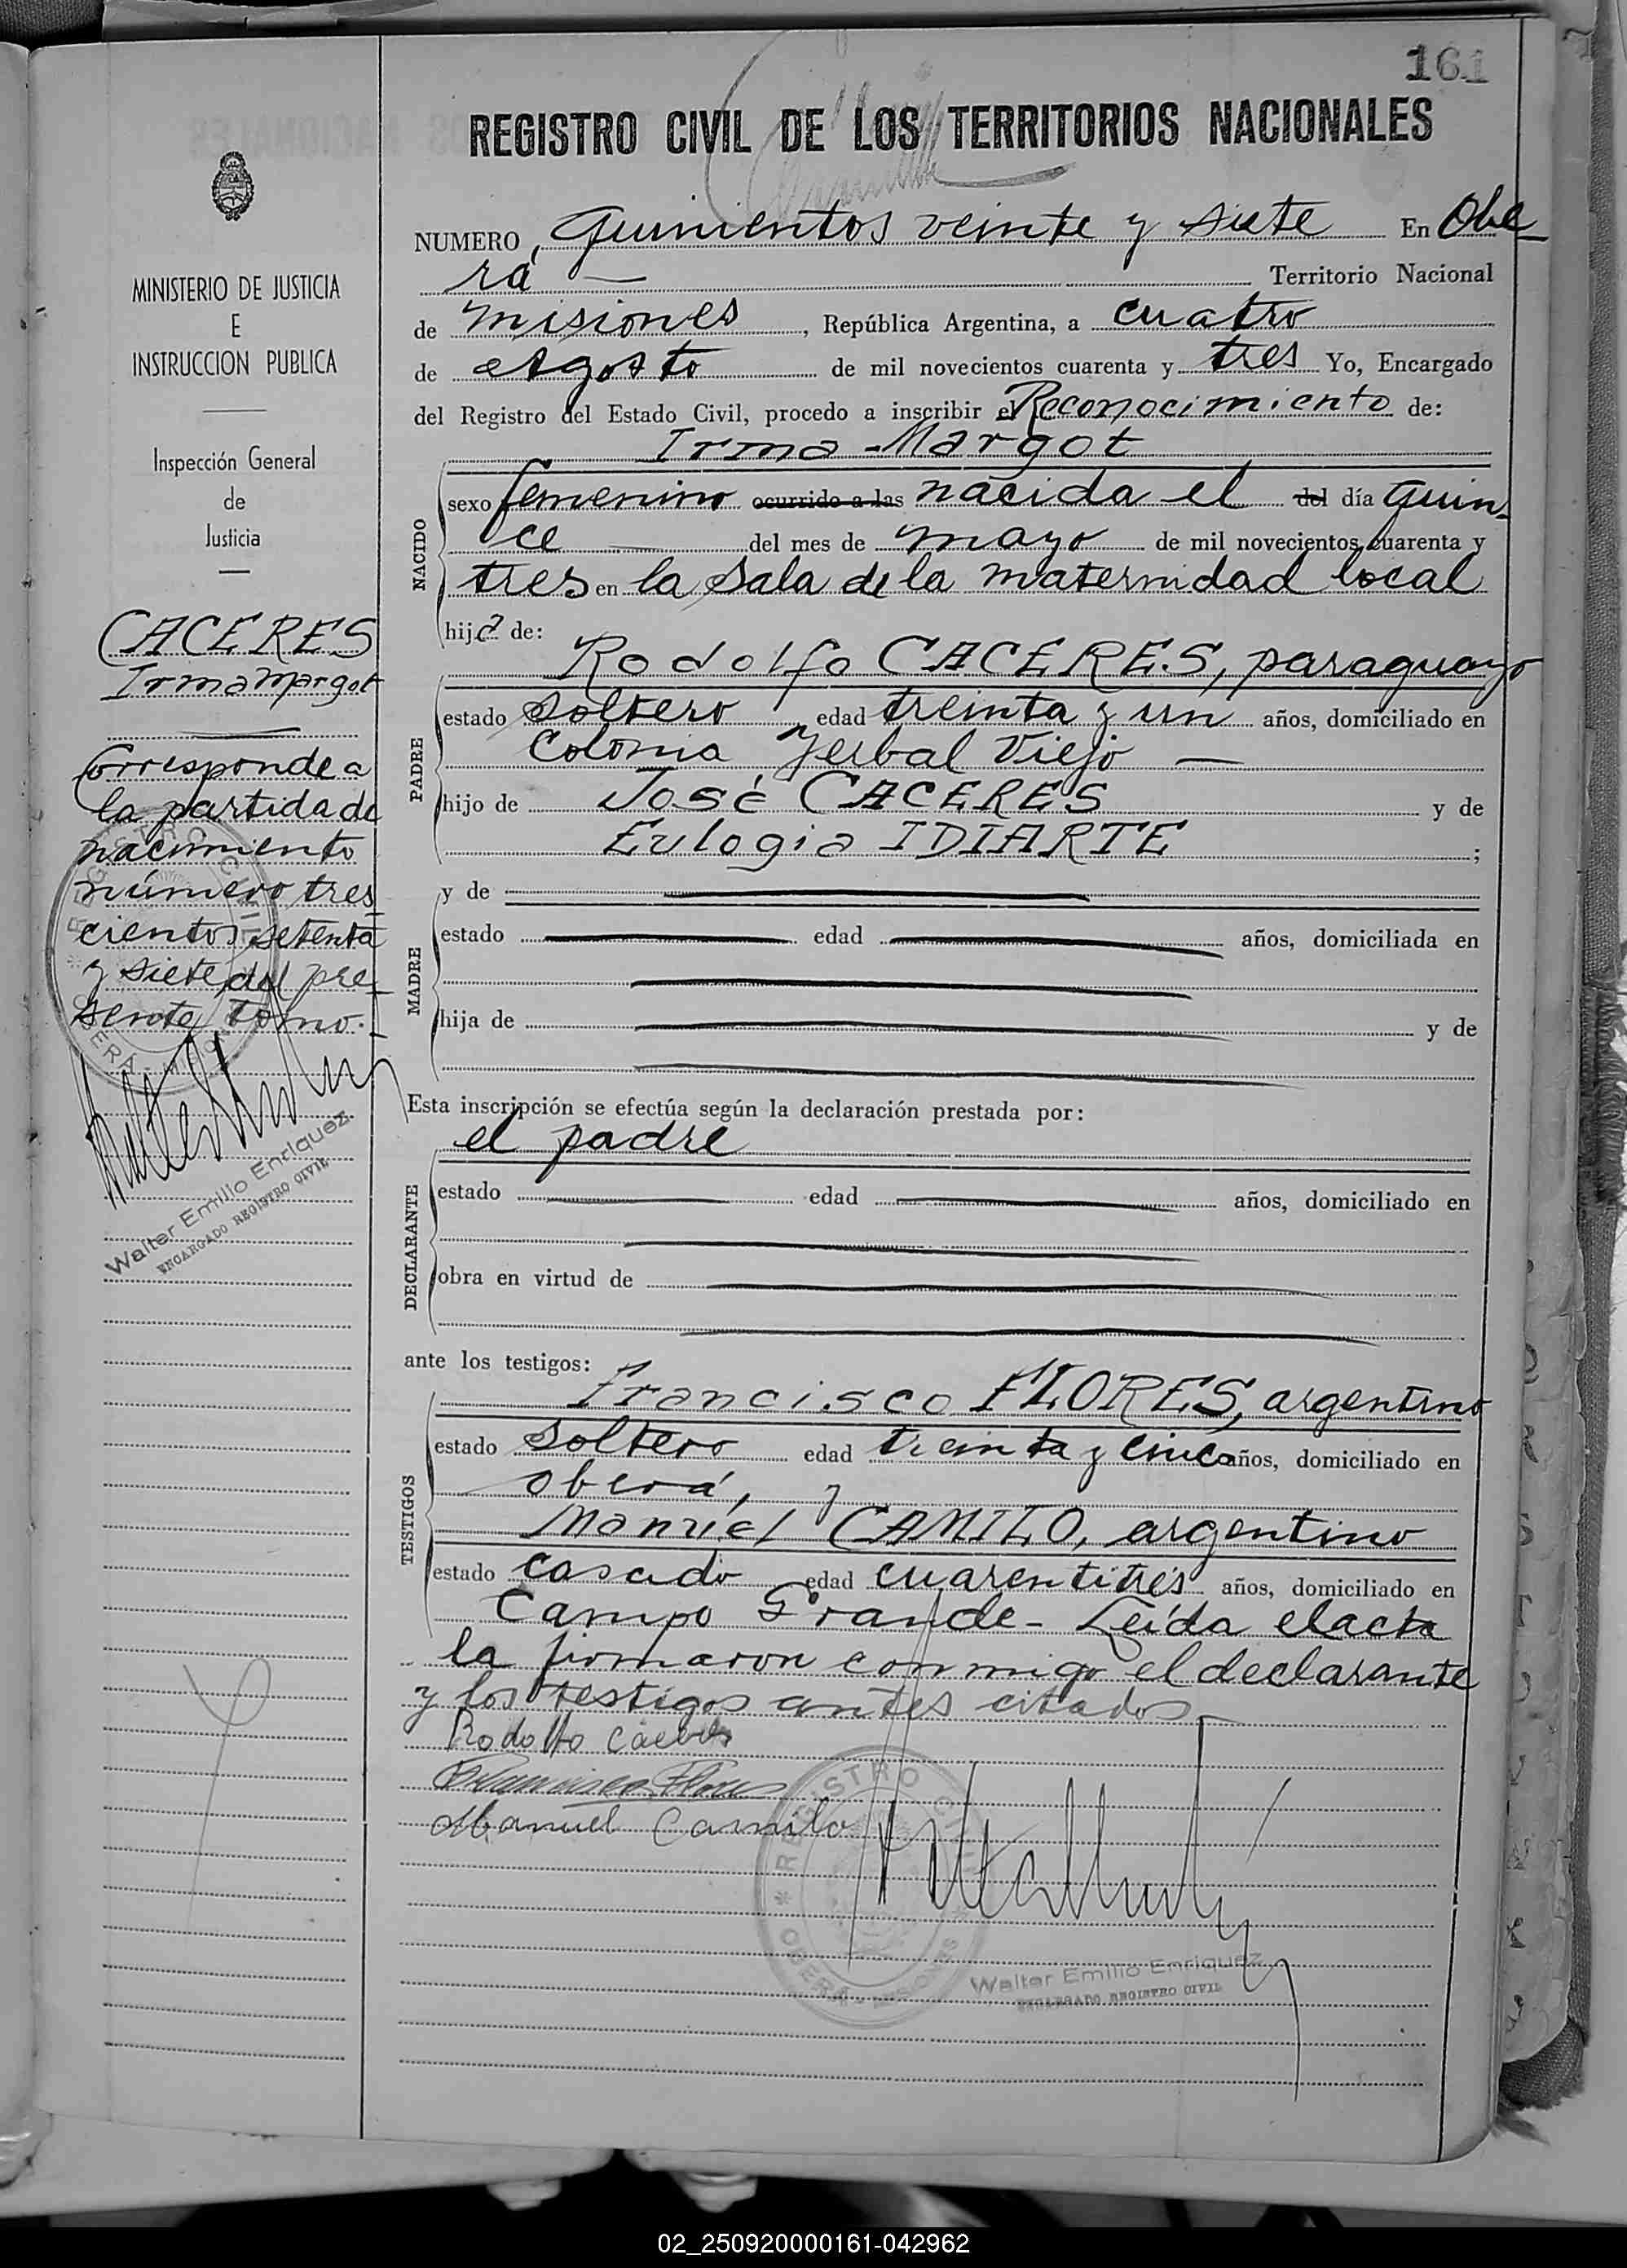 161
REGISTRO CIVIL DE LOS TERRITORIOS NACIONALES
MINISTERIO DE JUSTICIA
E
INSTRUCCION PUBLICA
Inspección General
de
Justicia
CACERES
Irma Margot
Corresponde a
la partida de
nacimiento
número tres
cientos setenta
y siete del pre-
sente tomo.-
Walter Emilio Enriquez
ENCARGADO REGISTRO CIVIL
NUMERO, Quinientos veinte y siete En Obe-
rá Territorio Nacional
de Misiones, República Argentina, a cuatro
de Agosto de mil novecientos cuarenta y tres Yo, Encargado
del Registro del Estado Civil, procedo a inscribir el Reconocimiento de:
Irma Margot
NACIDO
sexo femenino ocurrido a las nacida el del día quin-
ce del mes de mayo de mil novecientos cuarenta y
tres en la sala de la maternidad local
hija de:
Rodolfo CACERES, paraguayo
PADRE
estado soltero edad treinta y un años, domiciliado en
Colonia Yerbal Viejo
hijo de José CACERES y de
Eulogia IDIARTE ;
MADRE
y de
estado edad años, domiciliada en
hija de y de
Esta inscripción se efectúa según la declaración prestada por:
el padre
DECLARANTE
estado edad años, domiciliado en
obra en virtud de
ante los testigos:
Francisco FLORES, argentino
TESTIGOS
estado soltero edad treinta y cinco años, domiciliado en
oberá, y
Manuel CAMILO, argentino
estado casado edad cuarentitrés años, domiciliado en
Campo Grande- Leída el acta
la firmaron conmigo el declarante
y los testigos antes citados
Rodolfo Caceres
Francisco Flores
Manuel Camilo
REGISTRO CIVIL
OBERÁ - MISIONES
Walter Emilio Enriquez
ENCARGADO REGISTRO CIVIL
02_250920000161-042962